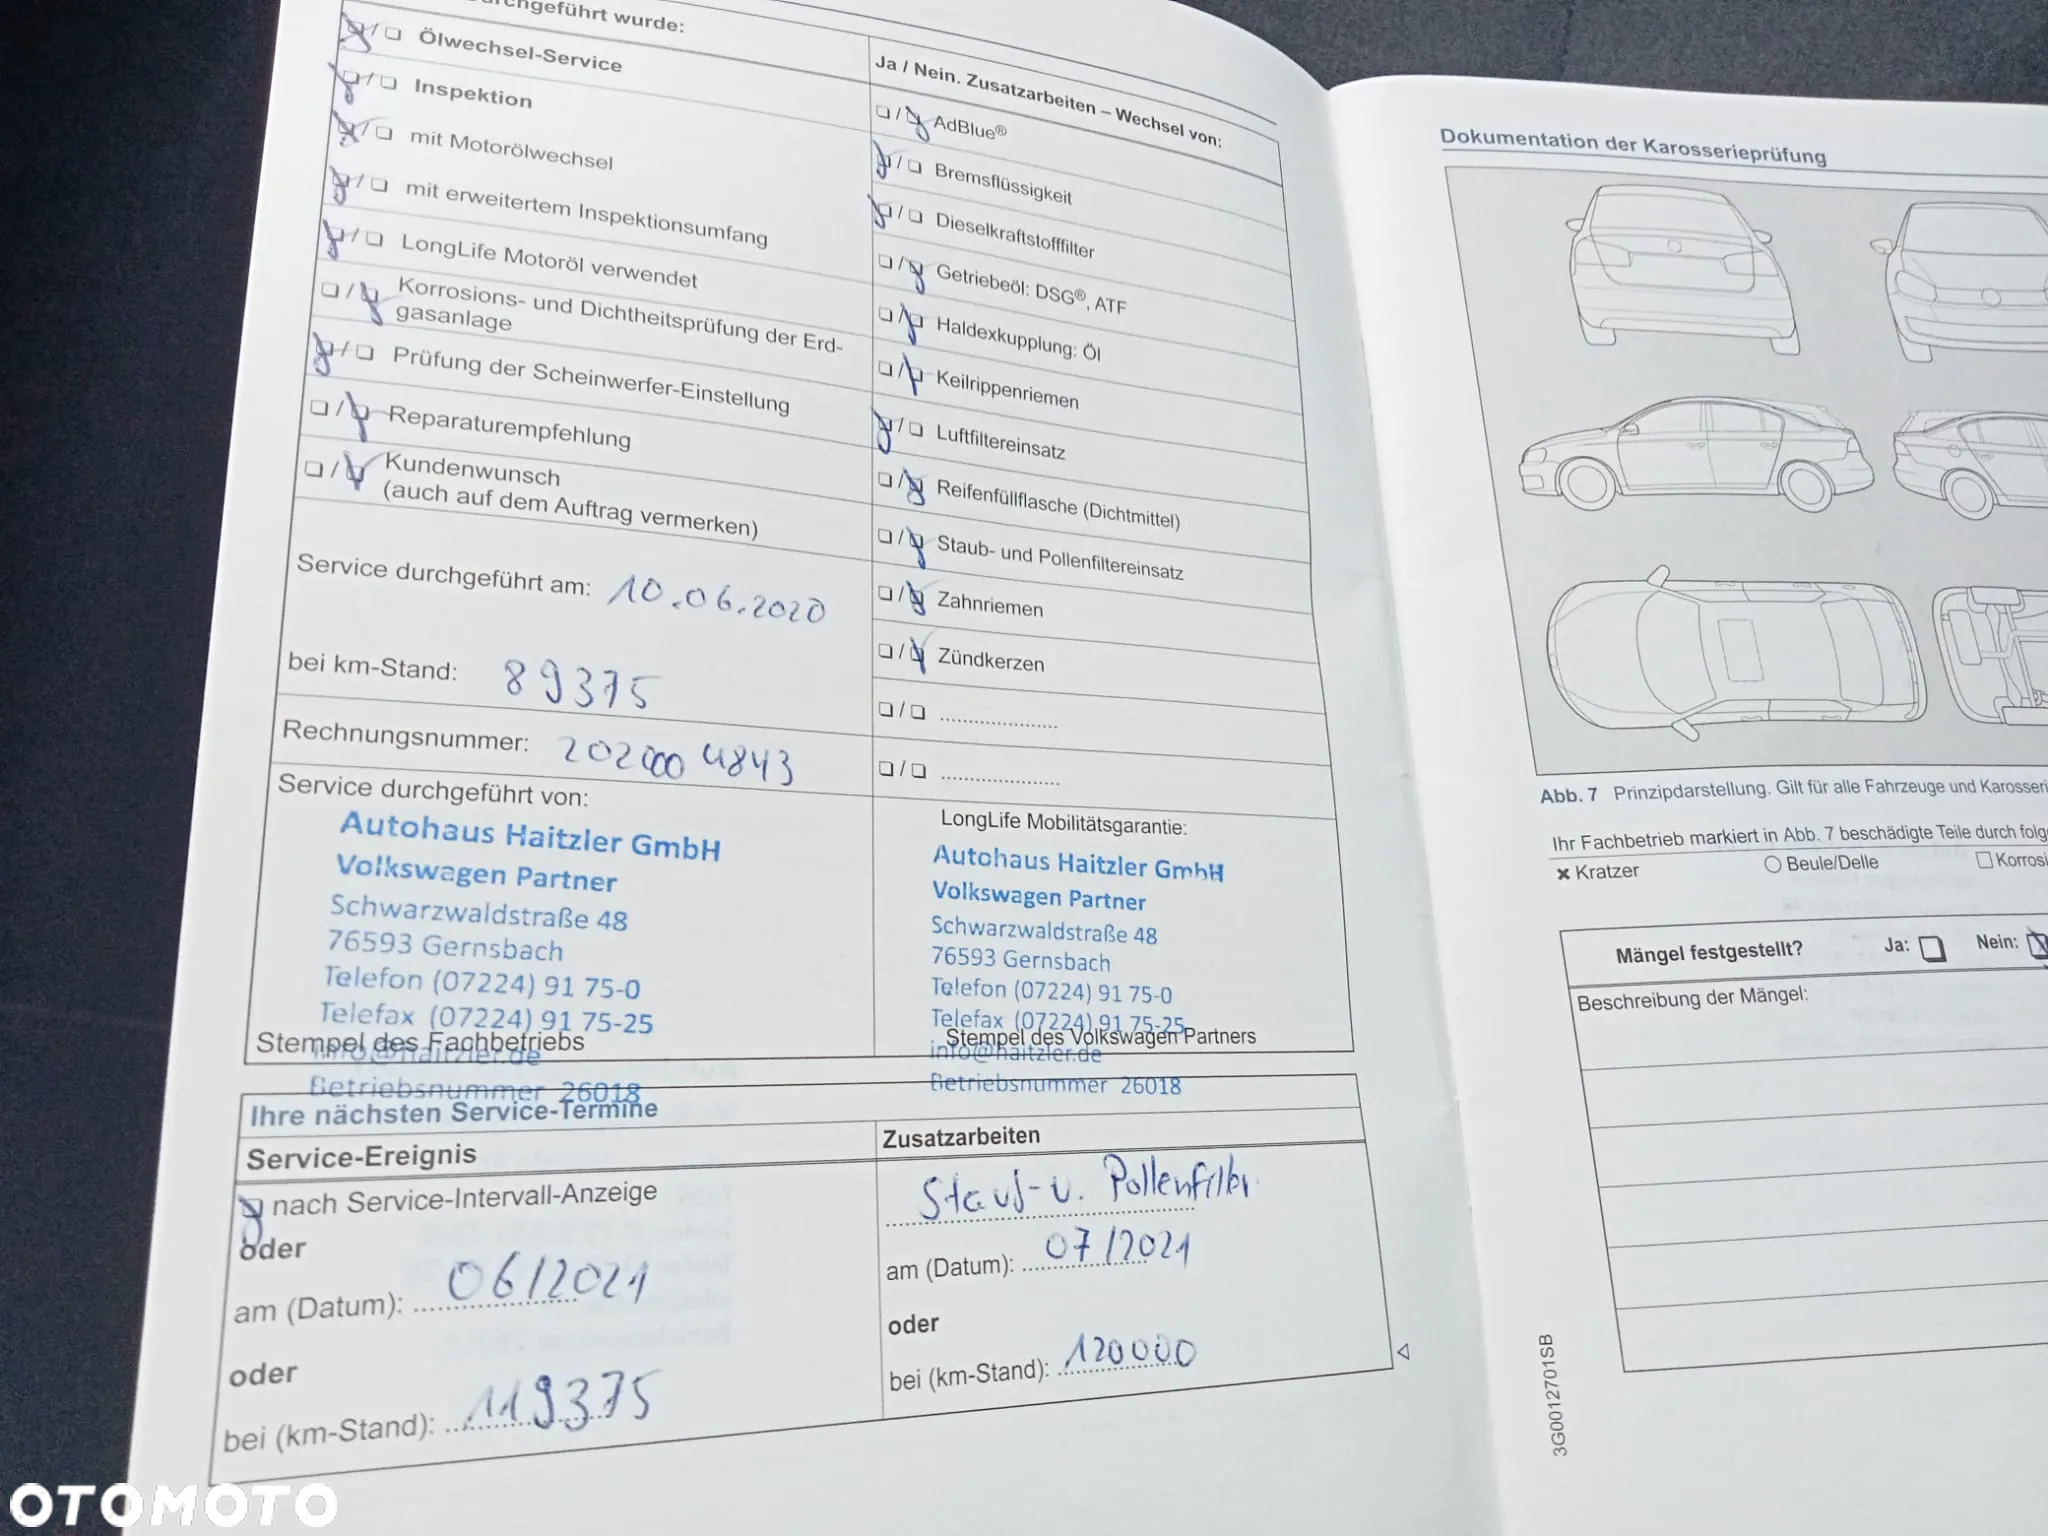 durchgeführt wurde:
Ölwechsel-Service
Inspektion
mit Motorölwechsel
mit erweitertem Inspektionsumfang
LongLife Motoröl verwendet
Korrosions- und Dichtheitsprüfung der Erd-
gasanlage
Prüfung der Scheinwerfer-Einstellung
Reparaturempfehlung
Kundenwunsch
(auch auf dem Auftrag vermerken)
Service durchgeführt am: 10.06.2020
bei km-Stand: 89375
Rechnungsnummer: 2020004843
Service durchgeführt von:
Autohaus Haitzler GmbH
Volkswagen Partner
Schwarzwaldstraße 48
76593 Gernsbach
Telefon (07224) 91 75-0
Telefax (07224) 91 75-25
Stempel des Fachbetriebs
info@haitzler.de
Betriebsnummer 26018
Ja / Nein. Zusatzarbeiten – Wechsel von:
AdBlue®
Bremsflüssigkeit
Dieselkraftstofffilter
Getriebeöl: DSG®, ATF
Haldexkupplung: Öl
Keilrippenriemen
Luftfiltereinsatz
Reifenfüllflasche (Dichtmittel)
Staub- und Pollenfiltereinsatz
Zahnriemen
Zündkerzen
LongLife Mobilitätsgarantie:
Autohaus Haitzler GmbH
Volkswagen Partner
Schwarzwaldstraße 48
76593 Gernsbach
Telefon (07224) 91 75-0
Telefax (07224) 91 75-25
Stempel des Volkswagen Partners
info@haitzler.de
Betriebsnummer 26018
Ihre nächsten Service-Termine
Service-Ereignis
nach Service-Intervall-Anzeige
oder
am (Datum): 06/2021
oder
bei (km-Stand): 119375
Zusatzarbeiten
Staub-u. Pollenfilter
am (Datum): 07/2021
oder
bei (km-Stand): 120000
Dokumentation der Karosserieprüfung
Abb. 7 Prinzipdarstellung. Gilt für alle Fahrzeuge und Karosseri
Ihr Fachbetrieb markiert in Abb. 7 beschädigte Teile durch folg
Kratzer
Beule/Delle
Korrosi
Mängel festgestellt? Ja: Nein:
Beschreibung der Mängel:
3G0012701SB
OTOMOTO